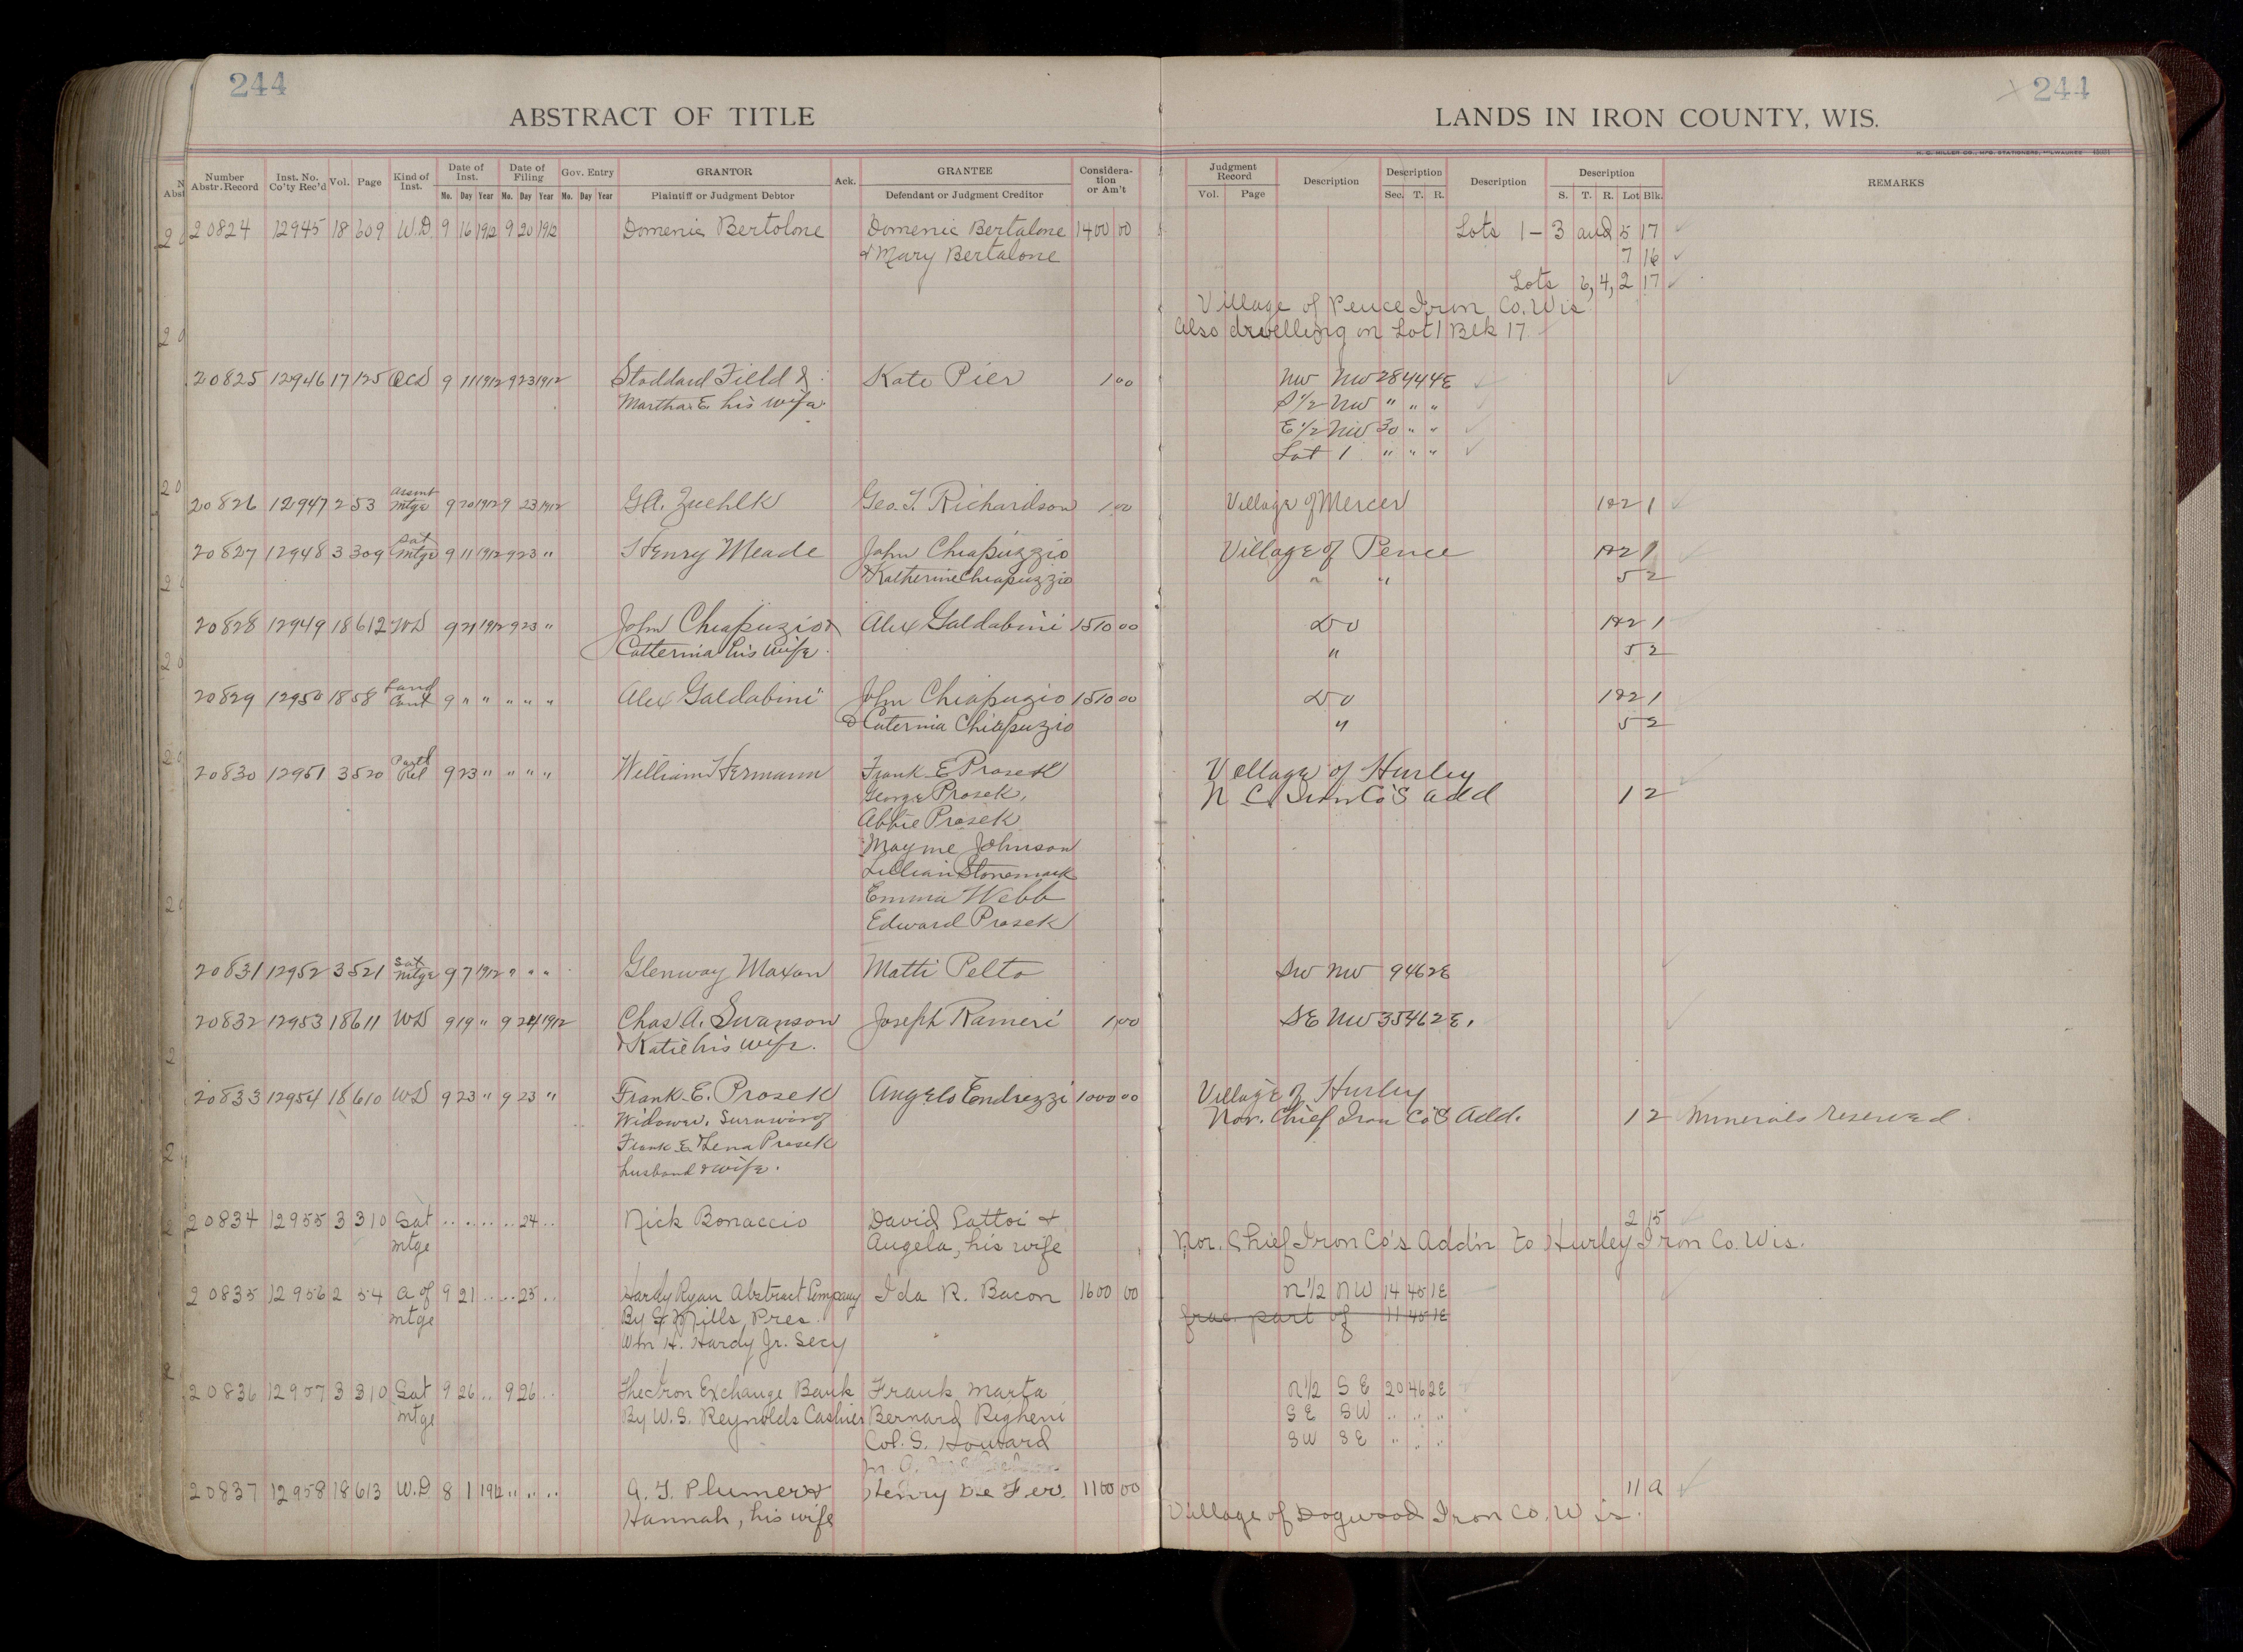 244
244
ABSTRACT OF TITLE
LANDS IN IRON COUNTY, WIS.
H. C. MILLER CO., MFG. STATIONERS, MILWAUKEE
Number Abstr. Record Inst. No. Co'ty Rec'd Vol. Page Kind of Inst. Date of Inst. Date of Filing Gov. Entry GRANTOR Ack. GRANTEE Considera-tion or Am't Judgment Record Description Description Description Description REMARKS
Mo. Day Year Mo. Day Year Mo. Day Year Plaintiff or Judgment Debtor Defendant or Judgment Creditor Vol. Page Sec. T. R. S. T. R. Lot Blk.
20824 12945 18 609 W.D. 9 16 1912 9 20 1912 Domenic Bertolone Domenic Bertalone 1400 00 Lots 1-3 and 5 17
& Mary Bertalone 7 16
Lots 6, 4, 2 17
Village of Pence Iron Co. Wis
Also dwelling on Lot 1 Blk 17
20825 12946 17 125 QCD 9 11 1912 9 23 1912 Stoddard Field & Kate Pier 1 00 NW NW 28 44 4E
Martha E. his wife S 1/2 NW " " "
E 1/2 NW 30 " "
Lot 1 " " "
20826 12947 2 53 Assmt Mtge 9 20 1912 9 23 1912 G.A. Zuehlk Geo. T. Richardson 1 00 Village of Mercer 1&2 1
20827 12948 3 309 Sat Mtge 9 11 1912 9 23 " Henry Meade John Chiapuzzio Village of Pence 1&2 1
& Katherine Chiapuzzio " " 5 2
20828 12949 18 612 WD 9 21 1912 9 23 " John Chiapuzio & Alex Galdabini 1510 00 Do 1&2 1
Catterina his wife " 5 2
20829 12950 18 58 Land Cont 9 " " " " " Alex Galdabini John Chiapuzio 1510 00 Do 1&2 1
& Caternia Chiapuzio " 5 2
20830 12951 3 520 Partl Rel 9 23 " " " " William Hermann Frank E Prosek Village of Hurley
George Prosek, N. C. Iron Co's add 1 2
Abbie Prosek
Mayme Johnson
Lillian Stonemark
Emma Webb
Edward Prosek
20831 12952 3 521 Sat Mtge 9 7 1912 " " " Glenway Maxon Matti Pelto SW NW 9 46 2E
20832 12953 18 611 WD 9 19 " 9 24 1912 Chas A. Swanson Joseph Rameri 1 00 SE NW 35 46 2E.
& Katie his wife.
20833 12954 18 610 WD 9 23 " 9 23 " Frank E. Prosek Angelo Endrizzi 1000 00 Village of Hurley
Widower, Surviving Nor. Chief Iron Co's Add. 1 2 Minerals reserved.
Frank E & Lena Prosek
husband & wife.
20834 12955 3 310 Sat Mtge " " " " 24 " Nick Bonaccio David Lattoi & 2 15
Angela, his wife Nor. Chief Iron Co's Add'n to Hurley Iron Co. Wis.
20835 12956 2 54 A of Mtge 9 21 " " 25 " Hardy Ryan Abstract Company Ida R. Bacon 1600 00 N 1/2 NW 14 45 1E
By Mills, Pres. frac part of 11 45 1E
Wm H. Hardy Jr. Secy
20836 12957 3 310 Sat Mtge 9 26 " 9 26 " The Iron Exchange Bank Frank Marta N 1/2 SE 20 46 2E
By W. S. Reynolds Cashier Bernard Righeni SE SW " " "
Col. S. Howard SW SE " " "
20837 12958 18 613 W.D 8 1 1912 " " " A. F. Plumer & Henry De Fer. 1100 00 11 9
Hannah, his wife Village of Dogwood Iron Co. Wis.